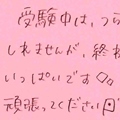 受験中は、つら
しれませんが、終
いっぱいです
頑張ってください